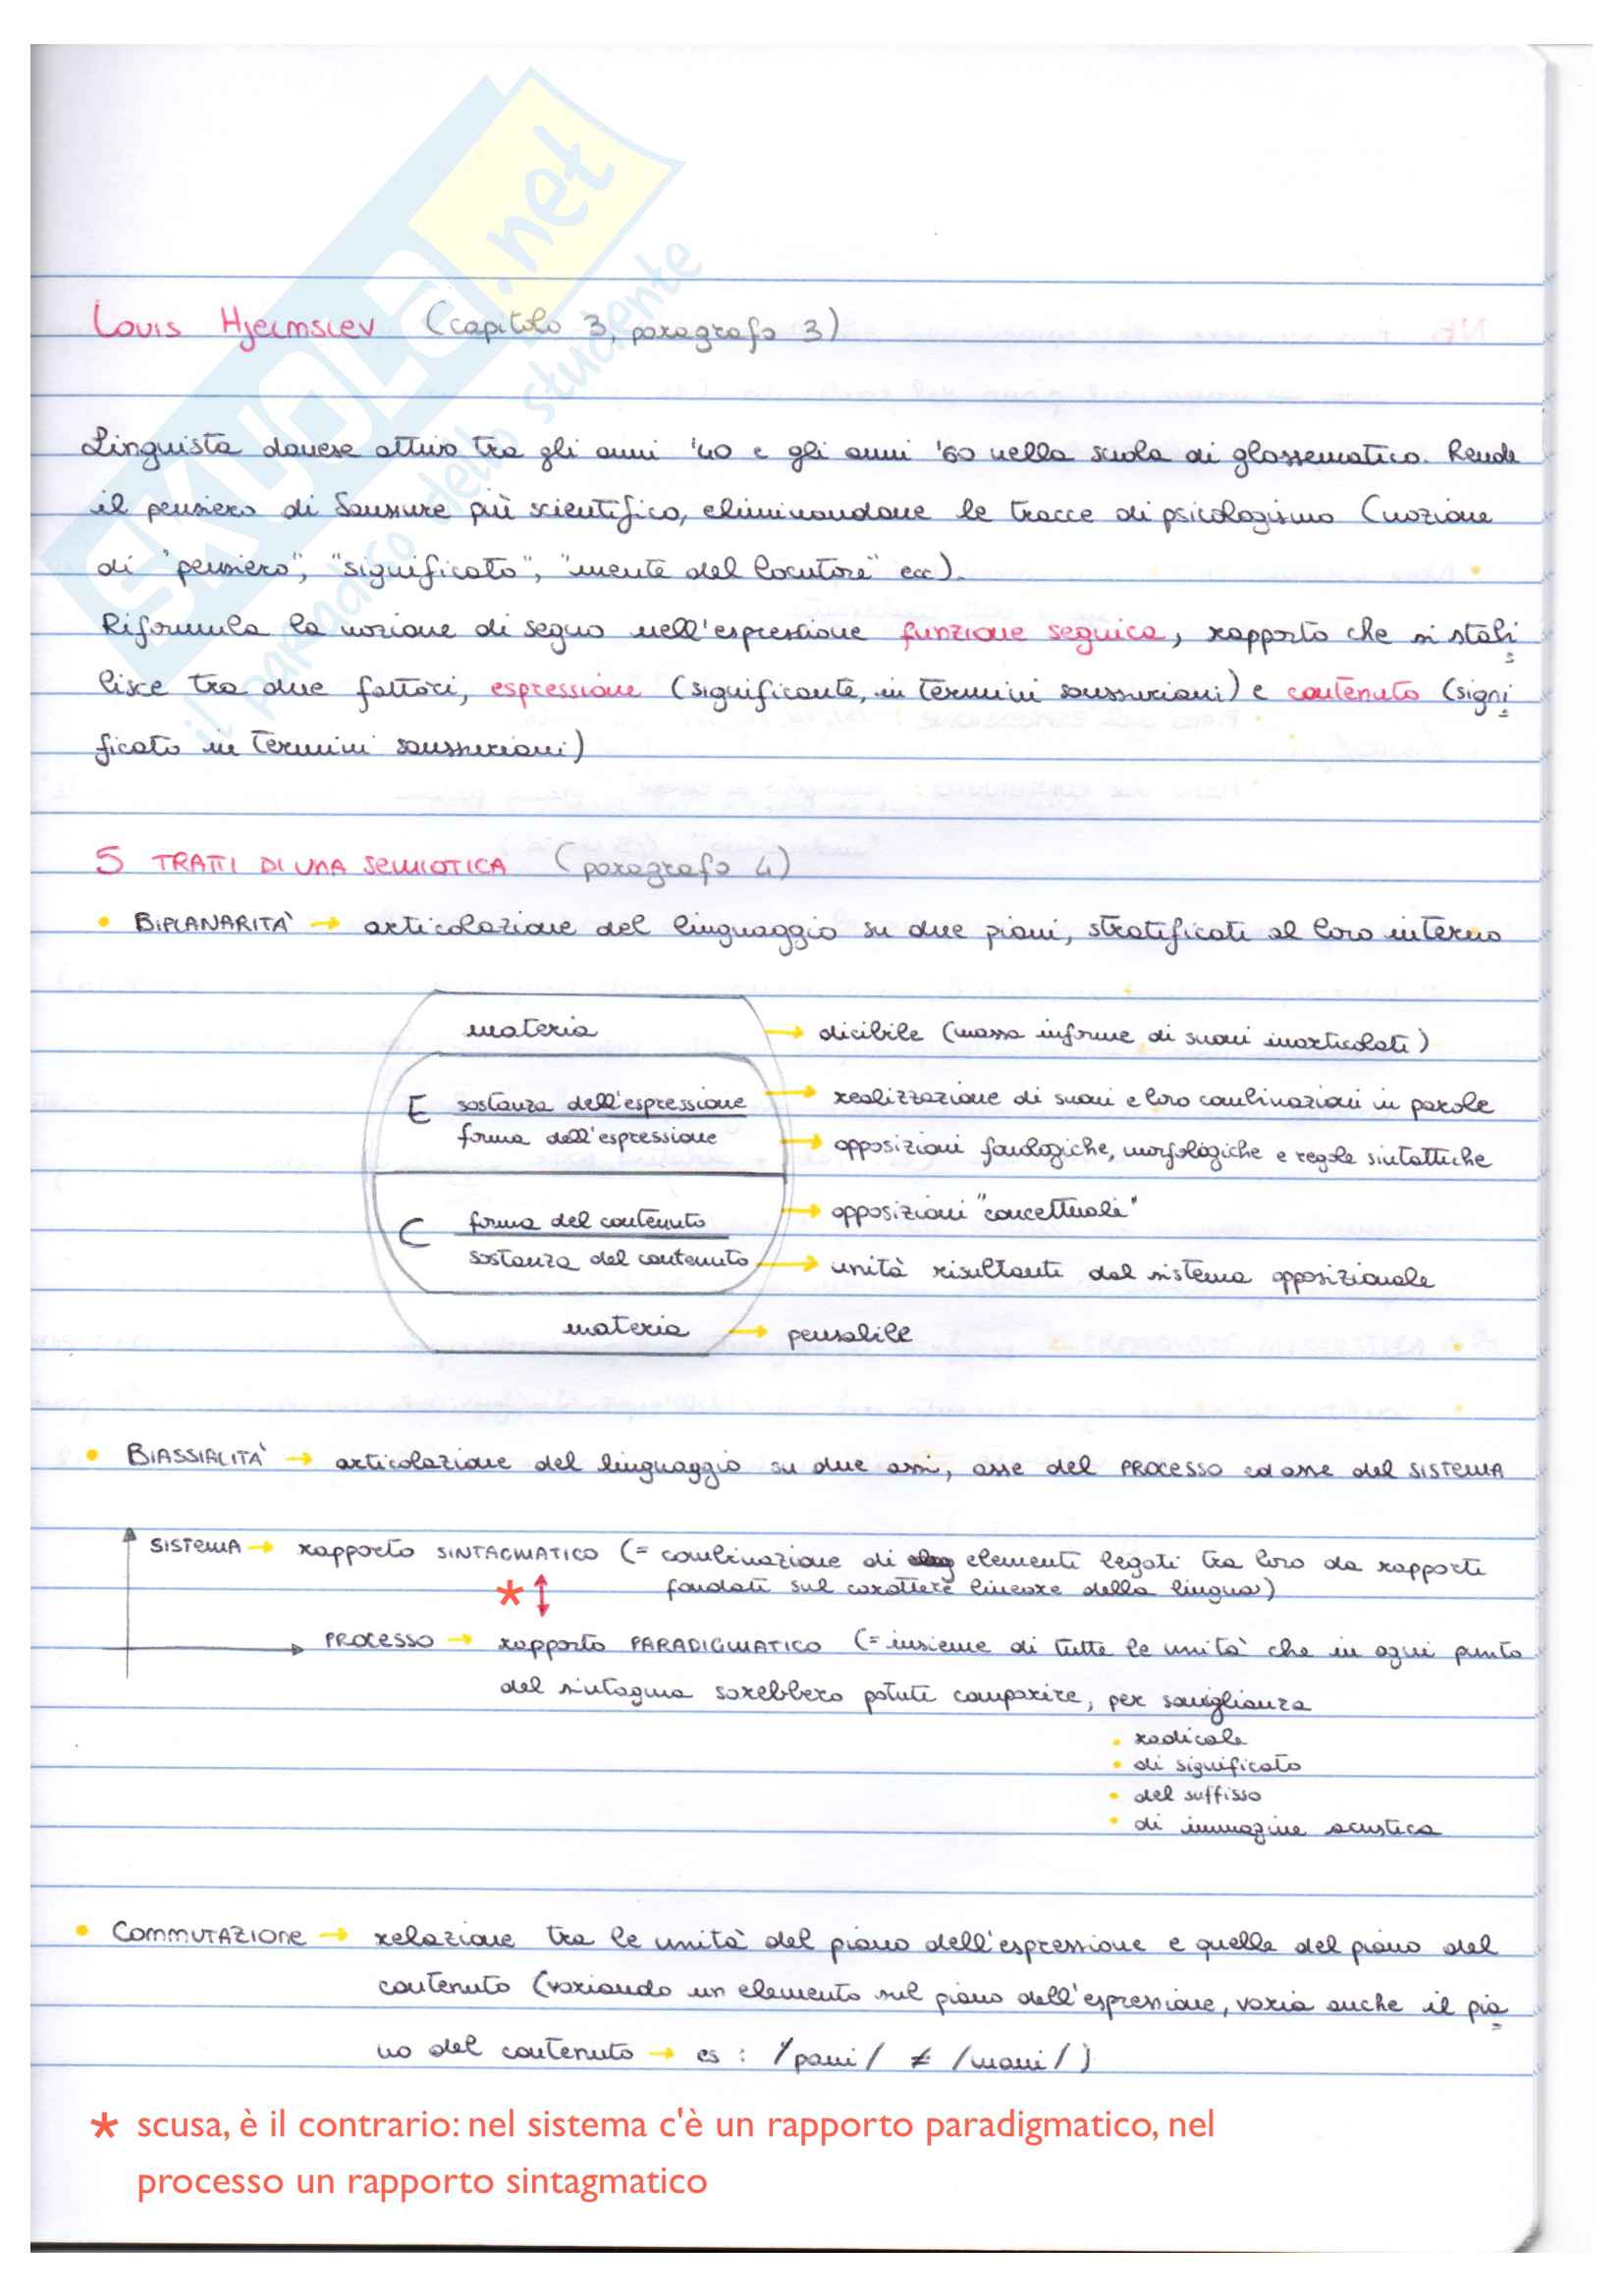 SKUOLA.net
il paradiso dello studente
Louis Hjelmslev (capitolo 3, paragrafo 3)
Linguista danese attivo tra gli anni '40 e gli anni '60 nella scuola di glossematica. Rende
il pensiero di Saussure più scientifico, eliminandone le tracce di psicologismo (nozione
di "pensiero", "significato", "mente del locutore" ecc).
Riformula la nozione di segno nell'espressione funzione segnica, rapporto che si stabi
lisce tra due fattori, espressione (significante, in termini saussuriani) e contenuto (signi
ficato in termini saussuriani)
5 TRATTI DI UNA SEMIOTICA (paragrafo 4)
• BIPLANARITÀ → articolazione del linguaggio su due piani, stratificati al loro interno
materia → dicibile (massa informe di suoni inarticolati)
E sostanza dell'espressione → realizzazione di suoni e loro combinazioni in parole
forma dell'espressione → opposizioni fonologiche, morfologiche e regole sintattiche
C forma del contenuto → opposizioni "concettuali"
sostanza del contenuto → unità risultanti dal sistema opposizionale
materia → pensabile
• BIASSIALITÀ → articolazione del linguaggio su due assi, asse del PROCESSO ed asse del SISTEMA
SISTEMA → rapporto SINTAGMATICO (= combinazione di elementi legati tra loro da rapporti
* ↕ fondati sul carattere lineare della lingua)
PROCESSO → rapporto PARADIGMATICO (= insieme di tutte le unità che in ogni punto
del sintagma sarebbero potute comparire, per somiglianza
• radicale
• di significato
• del suffisso
• di immagine acustica
• COMMUTAZIONE → relazione tra le unità del piano dell'espressione e quelle del piano del
contenuto (variando un elemento sul piano dell'espressione, varia anche il pia
no del contenuto → es : /pani/ ≠ /mani/)
* scusa, è il contrario: nel sistema c'è un rapporto paradigmatico, nel
processo un rapporto sintagmatico